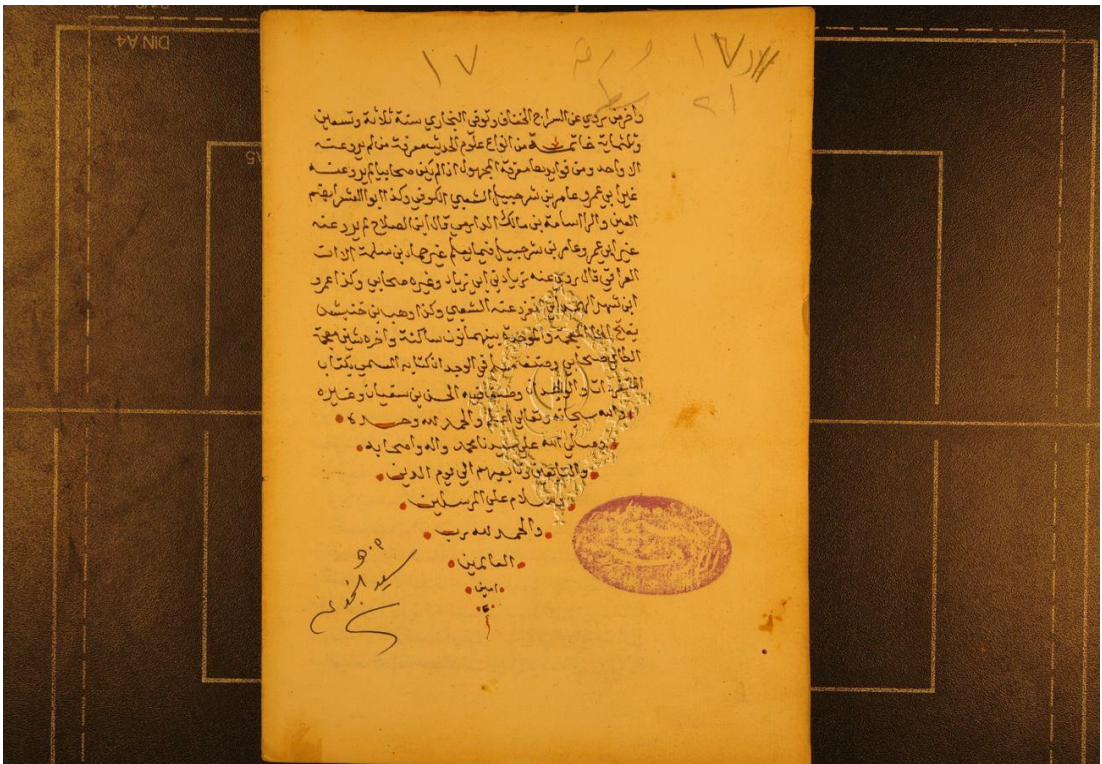 ١٧ ورقة ١٧
٢١ سطر
وآخر من يروي عن السراج الخفاف وتوفي البخاري سنة ثلاثة وتسعين
وثلثماية خاتمة من انواع علوم الحديث معرفة من لم يرو عنه
الا واحد ومن فوايده معرفة المجهول اذا لم يكن صحابيا لم يرو عنه
غير ابي عمرو عامر بن شرحبيل الشعبي الكوفي وكذا ابو العشرا بضم
العين والرا اسامة بن مالك الدارمي قال ابن الصلاح لم يرو عنه
غير ابي عمرو عامر بن شرحبيل فيما يعلم غير حماد بن سلمة الا ان
العراقي قال روي عنه زياد بن ابي زياد وغيره صحابي وكذا عمرو
ابن شهر الهمداني تفرد عنه الشعبي وكذا وهب بن خنبش
بفتح الخا المعجمة والموحدة بينهما نون ساكنة واخره شين معجمة
الطائي صحابي وصنف مسلم في الوجدان كتابه المسمي بكتاب
المنفردات والوحدان وصنف فيه الحسن بن سفيان وغيره
والله سبحانه وتعالي اعلم والحمد لله وحده
وصلي الله علي سيدنا محمد واله واصحابه
والتابعين وتابعيهم الي يوم الدين
وسلام علي المرسلين
والحمد لله رب
العالمين
امين